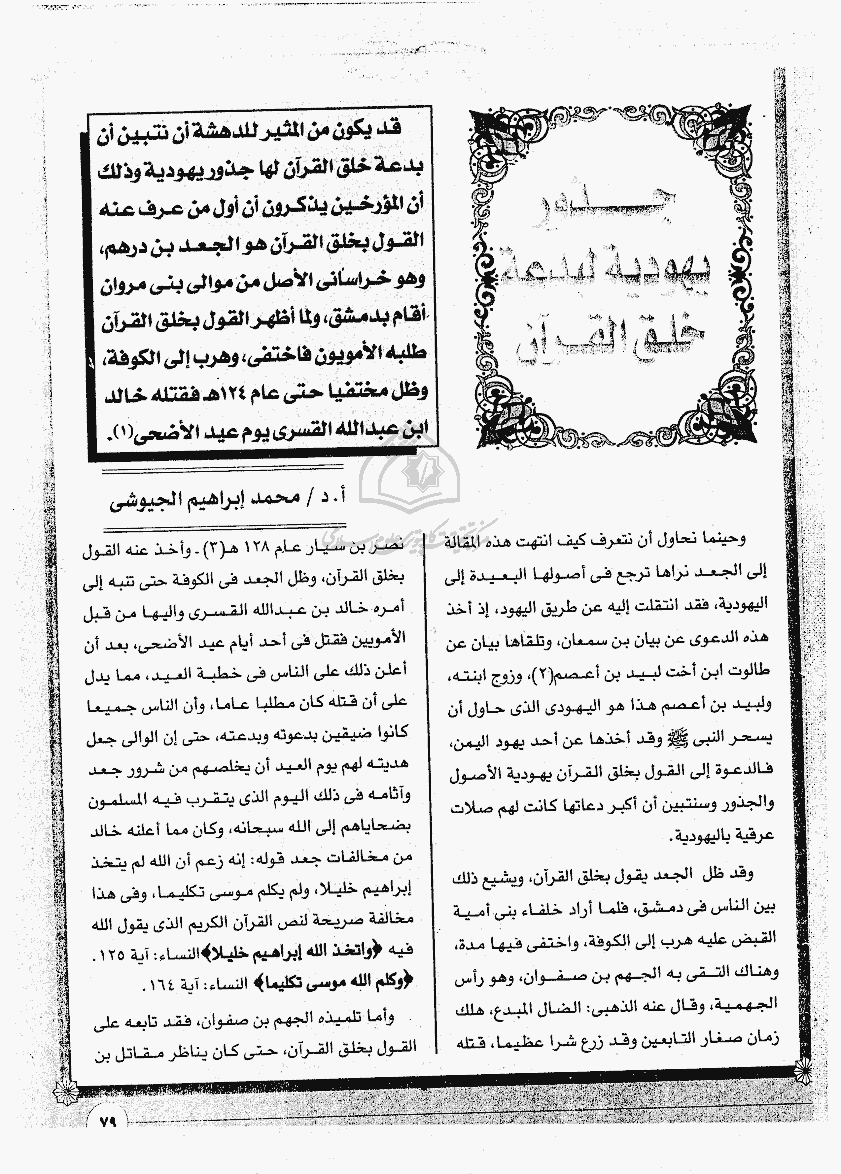 جذور
يهودية لبدعة
خلق القرآن
قد يكون من المثير للدهشة أن نتبين أن
بدعة خلق القرآن لها جذور يهودية وذلك
أن المؤرخين يذكرون أن أول من عرف عنه
القول بخلق القرآن هو الجعد بن درهم،
وهو خراسانى الأصل من موالى بنى مروان
أقام بدمشق، ولما أظهر القول بخلق القرآن
طلبه الأمويون فاختفى، وهرب إلى الكوفة،
وظل مختفيا حتى عام ١٢٤هـ فقتله خالد
ابن عبدالله القسرى يوم عيد الأضحى(١).
أ. د / محمد إبراهيم الجيوشى
وحينما نحاول أن نتعرف كيف انتهت هذه المقالة
إلى الجعد نراها ترجع فى أصولها البعيدة إلى
اليهودية، فقد انتقلت إليه عن طريق اليهود، إذ أخذ
هذه الدعوى عن بيان بن سمعان، وتلقاها بيان عن
طالوت ابن أخت لبيد بن أعصم(٢)، وزوج ابنته،
ولبيد بن أعصم هذا هو اليهودى الذى حاول أن
يسحر النبى ﷺ وقد أخذها عن أحد يهود اليمن،
فالدعوة إلى القول بخلق القرآن يهودية الأصول
والجذور وسنتبين أن أكبر دعاتها كانت لهم صلات
عرقية باليهودية.
وقد ظل الجعد يقول بخلق القرآن، ويشيع ذلك
بين الناس فى دمشق، فلما أراد خلفاء بنى أمية
القبض عليه هرب إلى الكوفة، واختفى فيها مدة،
وهناك التقى به الجهم بن صفوان، وهو رأس
الجهمية، وقال عنه الذهبى: الضال المبدع، هلك
زمان صغار التابعين وقد زرع شرا عظيما، قتله
نصر بن سيار عام ١٢٨ هـ(٣) ـ وأخذ عنه القول
بخلق القرآن، وظل الجعد فى الكوفة حتى تنبه إلى
أمره خالد بن عبدالله القسرى واليها من قبل
الأمويين فقتل فى أحد أيام عيد الأضحى، بعد أن
أعلن ذلك على الناس فى خطبة العيد، مما يدل
على أن قتله كان مطلبا عاما، وأن الناس جميعا
كانوا ضيقين بدعوته وبدعته، حتى إن الوالى جعل
هديته لهم يوم العيد أن يخلصهم من شرور جعد
وآثامه فى ذلك اليوم الذى يتقرب فيه المسلمون
بضحاياهم إلى الله سبحانه، وكان مما أعلنه خالد
من مخالفات جعد قوله: إنه زعم أن الله لم يتخذ
إبراهيم خليلا، ولم يكلم موسى تكليما، وفى هذا
مخالفة صريحة لنص القرآن الكريم الذى يقول الله
فيه ﴿واتخذ الله إبراهيم خليلا﴾النساء: آية ١٢٥.
﴿وكلم الله موسى تكليما﴾ النساء: آية ١٦٤.
وأما تلميذه الجهم بن صفوان، فقد تابعه على
القول بخلق القرآن، حتى كان يناظر مقاتل بن
٧٩